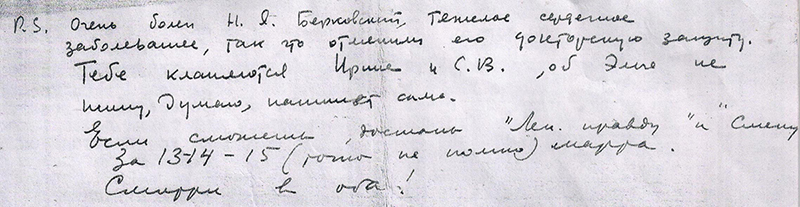 P.S. Очень болен Н. Я. Берковский, тяжелое сердечное
заболевание, так что отменили его докторскую защиту.
Тебе кланяются Ирина и С.В., об Элле не
пишу, думаю, напишет сама.
Если сможешь, достань "Лен. правду" и "Смену"
за 13-14-15 (точно не помню) марта.
Смотри в оба!